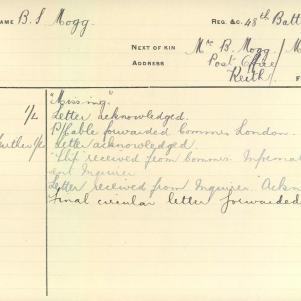 NAME B. S Mogg. REG. &C. 48th Batt
NEXT OF KIN Mr B. Mogg / M
ADDRESS Post Office
Keith
F
"Missing."
1/L Letter acknowledged.
P/Cable forwarded Commrs London.
further 1/L Letter acknowledged.
received from Commrs.
Inquirer
Letter received from Inquirer Ackn
Final circular letter forwarded